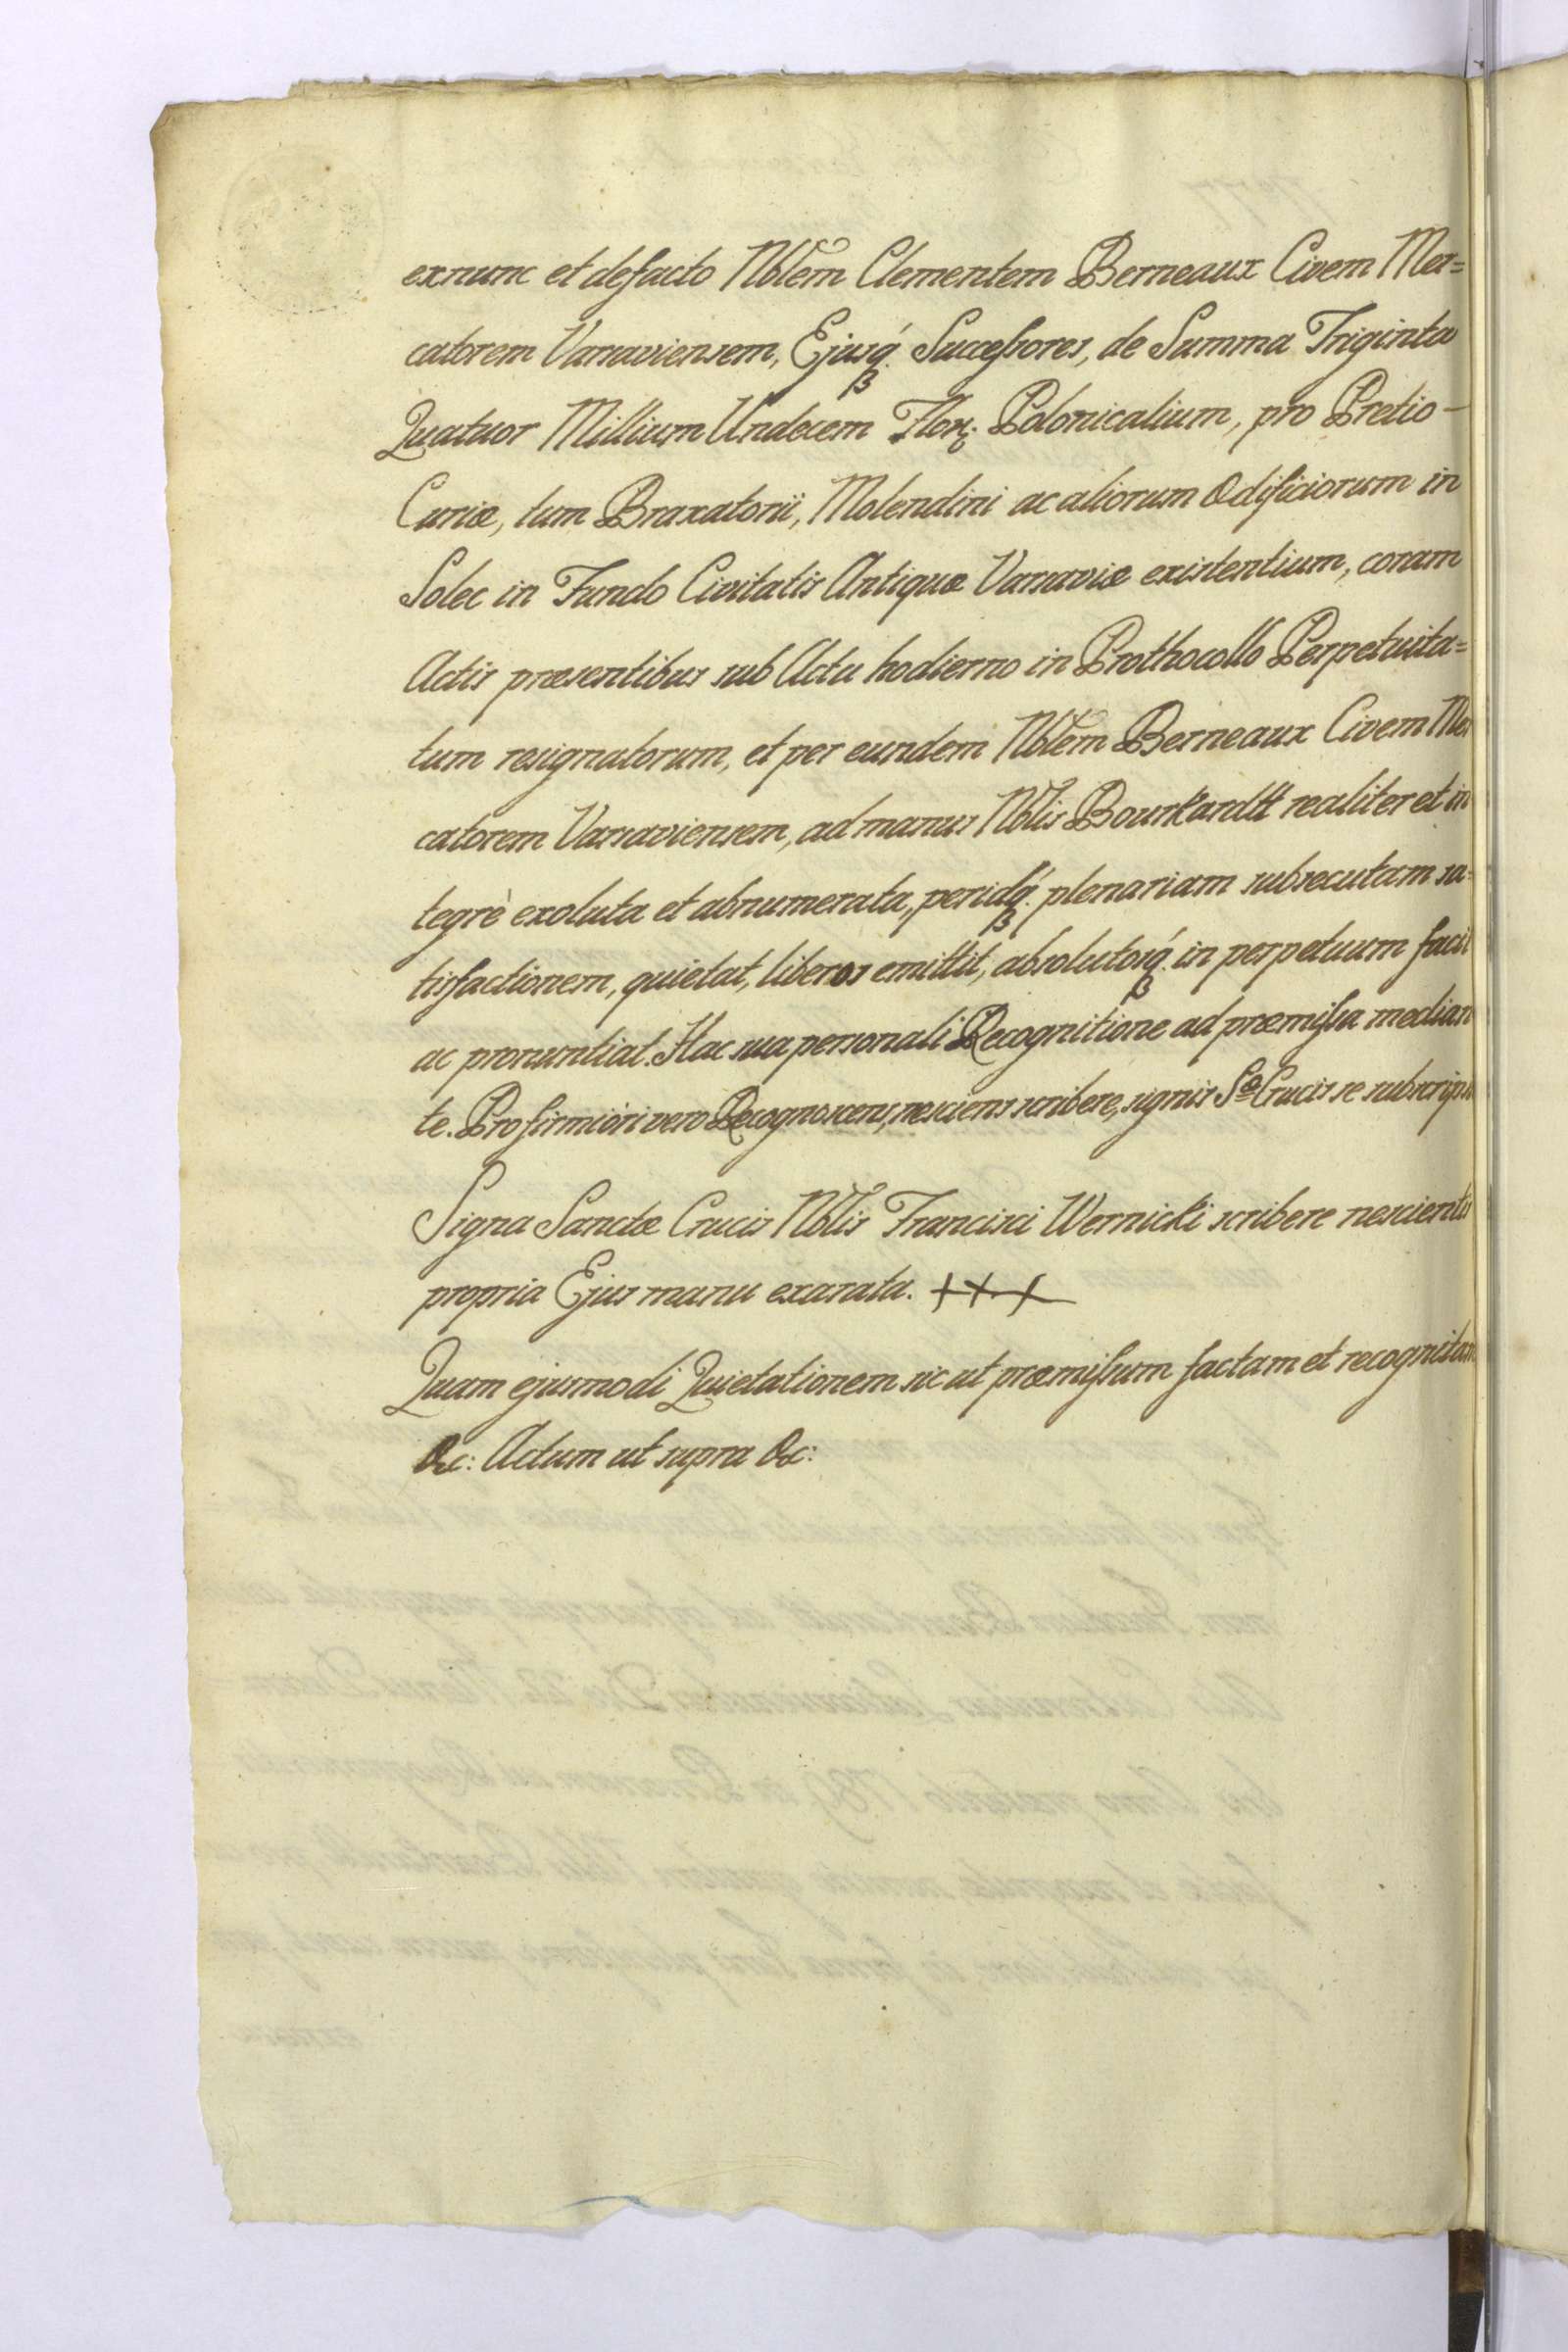 exnunc et defacto Nblem Clementem Berneaux Civem Mer=
catorem Varsaviensem, Ejusq́. Successores, de Summa Triginta
Quatuor Millium Undecem Flor. Polonicalium, pro Pretio –
Curiæ, tum Braxatorii, Molendini ac aliorum Ædificiorum in
Solec in Fundo Civitatis Antiquæ Varsaviæ existentium, coram
Actis præsentibus sub Actu hodierno in Prothocollo Perpetuita=
tum resignatorum, et per eundem Nblem Berneaux Civem Mer
catorem Varsaviensem, ad manus Nblis Bourkardtt realiter et in
tegrè exoluta et abnumerata, peridq́. plenariam subsecutam sa=
tisfactionem, quietat, liberos emittit, absolutosq́. in perpetuum facit
ac pronuntiat. Hac sua personali Recognitione ad præmissa median
te. Pro firmiori vero Recognoscens, nesciens scribere, signis Sæ Crucis se subscripsit
Signa Sanctæ Crucis Nblis Francisci Wernicki scribere nescientis
propria Ejus manu exarata. +++
Quam ejusmodi Quietationem sic ut præmissum factam et recognitam
&c: Actum ut supra &c: